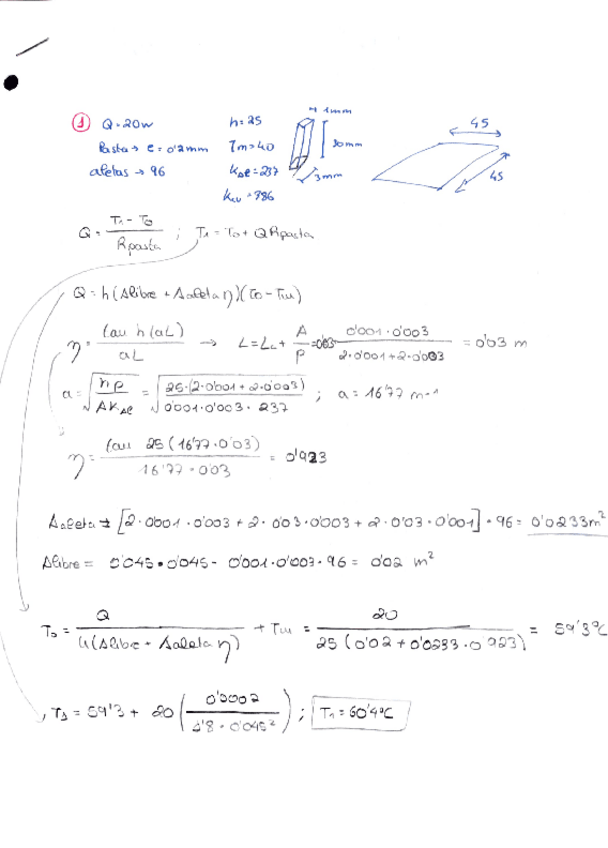 ① Q=20w h=25 1mm 45
Pasta → e=0'2mm Tm=40 30mm
aletas → 96 kAl=237 3mm 45
kcu=386
Q = (T1 - T0) / Rpasta ; T1 = T0 + Q Rpasta
Q = h (Alibre + Aaleta η)(T0 - TM)
η = (tanh(aL)) / (aL) → L = Lc + A/P = 0'03 (0'001·0'003) / (2·0'001+2·0'003) = 0'03 m
a = √(hp / A kAl) = √(25·(2·0'001+2·0'003) / (0'001·0'003·237)) ; a = 16'77 m-1
η = (tan 25 (16'77·0'03)) / (16'77·0'03) = 0'923
Aaleta = [2·0'001·0'003 + 2·0'03·0'003 + 2·0'03·0'001]·96 = 0'0233m²
Alibre = 0'045·0'045 - 0'001·0'003·96 = 0'02 m²
T0 = Q / (h(Alibre + Aaleta η)) + TM = 20 / (25 (0'02 + 0'0233·0'923)) = 59'3ºC
T1 = 59'3 + 20 (0'0002 / (1'8·0'045²)) ; T1 = 60'4ºC